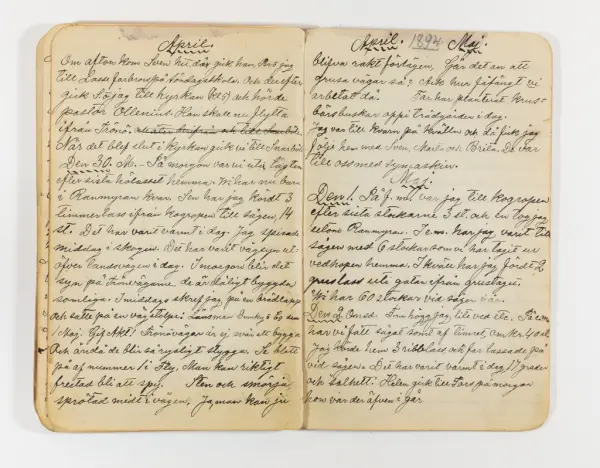 April.
Om afton kom Sven hit, då gik han, Per, jag
till Lasse farbrors på söndagsskola. Och derefter
gick S. o jag till kyrkan (kl 5) och hörde
pastor Ollenius. Han skall nu flytta
ifrån Trönö.
När det blef slut i kyrkan gick vi till
Den 30. M. På morgon var vi ute,
efter sista hölasset hemma. Vi har nu bara
i Ranmyran kvar. Sen har jag kördt 3
timmerlass ifrån Kogropen till sågen, 14
st. Det har varit varmt i dag. Jag spisade
middag i skogen. Det har varit vägsyn ut-
öfver landsvägen i dag. I morgon blir det
syn på Trönövägarne de är dåligt byggda
somliga. I middags skref jag på en brädlapp
och satte på en vägstolpe:
Maj. Gif Akt! Trönövägen är ej svår att bygga
och ändå de blir så rysligt stygga. Se blott
på af nummer /: Fly. Man kan riktigt
frestad bli att spy. Sten och smörja
sprötad midt i vägen. Ja, man kan ju
April. 1894 Maj.
blifva rakt förlägen. Går det an att
grusa vägar så? Ack hur fåfängt vi
arbetat då. Far har planterat krus-
bärsbuskar oppi trädgården i dag.
Jag var till kvarn på kvällen och då fick jag
följe hem med Sven, Karla och Brita. De var
till oss med symaskin.
Maj.
Den 1. På f. m. var jag till kogropen
efter sista stockarne 3 st. och en tog jag
se'n Ranmyran. I e.m. har jag varit till
sågen med 6 stockar som vi har tagit ur
vedhopen hemma. I kväll har jag fördt 2
gruslass ute gatan från grustaget.
Vi har 60 stockar vid sågen i år.
Den 2. Onsd. I m. högg jag till ved etc. På e.m.
har vi fått sågat somt af timret,
Jag körde hem 3 ribblass och far lassade på
vid sågen. Det har varit varmt i dag 17 grader
och halfhett. Helen gick till Lars på morgon
hon var der äfven i går.